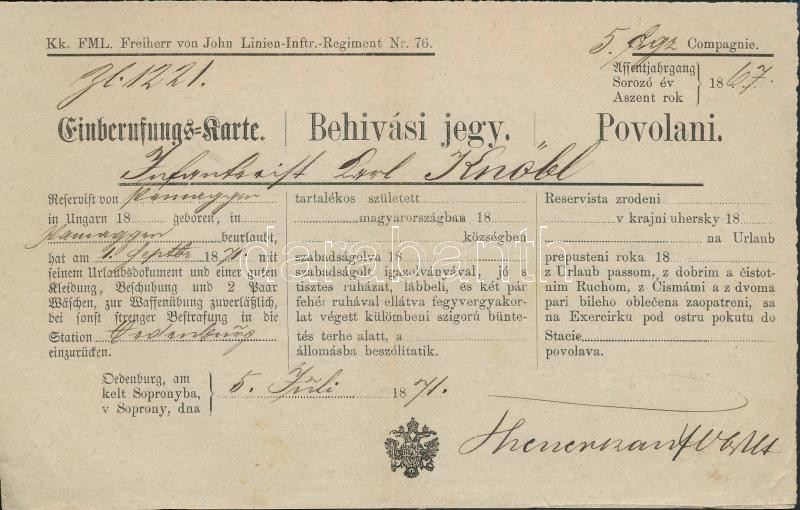 Kk. FML. Freiherr von John Linien-Inftr.-Regiment Nr. 76.
5. Compagnie.
Zl. 1221.
Assentjahrgang
Sorozó év
Aszent rok
1867.
Einberufungs-Karte. Behivási jegy. Povolani.
Infanterist Carl Knöbl
Reservist von
in Ungarn 18 geboren, in
beurlaubt,
hat am 1. Septbr 1871. mit
seinem Urlaubsdokument und einer guten
Kleidung, Beschuhung und 2 Paar
Wäschen, zur Waffenübung zuverläßlich,
bei sonst strenger Bestrafung in die
Station Oedenburg
einzurücken.
tartalékos született
magyarországban 18
községben
szabadságolva 18
szabadságoli igazolványával, jó s
tisztes ruházat, lábbeli, és két pár
fehér ruhával ellátva fegyvergyakor-
lat végett külömbeni szigorú bünte-
tés terhe alatt, a
állomásba beszólitatik.
Reservista zrodeni
v krajni uhersky 18
na Urlaub
prepusteni roka 18
z Urlaub passom, z dobrim a čistot-
nim Ruchom, z Čismámi a z dvoma
pari bileho oblečena zaopatreni, sa
na Exercirku pod ostru pokutu do
Stacie
povolava.
Oedenburg, am
kelt Sopronyba,
v Soprony, dna
5. Juli 1871.
darabanth